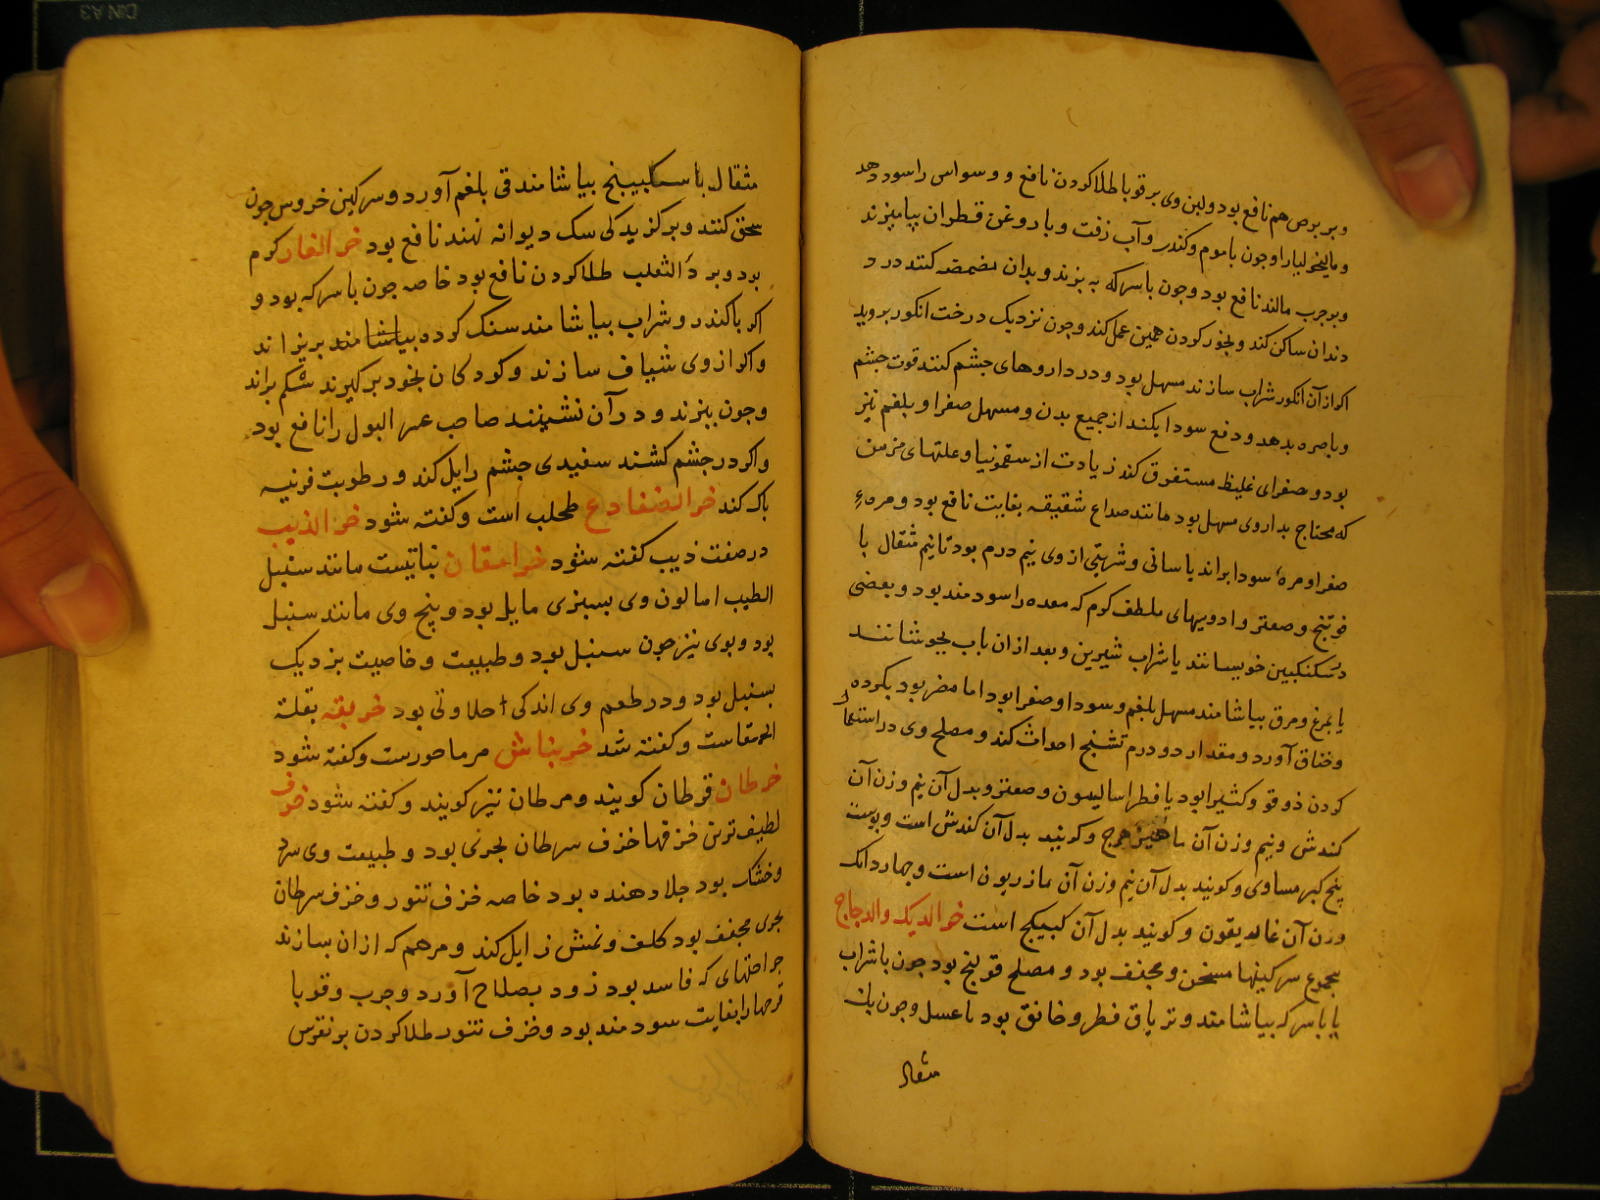 و بر برص هم نافع بود ولین وی بر قوبا طلا کردن نافع و وسواس را سود دهد
و مالیخولیا را و چون با موم و کندر و آب زفت و با روغن قطران بیامیزند
و بر جرب مالند نافع بود و چون با سرکه به پزند و بدان مضمضه کنند درد
دندان ساکن کند و بخور کردن همین عمل کند و چون نزدیک درخت انکور بروید
اکر از آن انکور شراب سازند مسهل بود و در داروهای چشم کنند قوت چشم
و باصره بدهد و دفع سودا بکند از جمیع بدن و مسهل صفرا و بلغم نیز
بود و صفرای غلیظ مستفرق کند زیادت از سقمونیا و علتهای مزمن
که محتاج بداروی مسهل بود مانند صداع شقیقه بغایت نافع بود و مرهء
صفرا و مرهء سودا براند باسانی و شربتی از وی نیم درم بود تا نیم مثقال با
فوتنج و صعتر و ادویهای ملطف کرم که معده را سودمند بود و بعضی
در سکنکبین خویسانند یا شراب شیرین و بعد ازان باب بجوشانند
یا بمرغ و مرق بیاشامند مسهل بلغم و سودا و صفرا بود اما مضر بود بکرده
و خناق آورد و مقدار دو درم تشنج احداث کند و مصلح وی در استعمال
کردن ذوقو و کثیرا بود یا فطراسالیون و صعتر و بدل آن نیم وزن آن
کندش و نیم وزن آن ماهیزهرج و کویند بدل آن کندش است و پوست
پنج کبر مساوی و کویند بدل آن نیم وزن آن مازریون است و چهار دانک
وزن آن غاریقون و کویند بدل آن کبیکج است خرء الدیک والدجاج
مجموع سرکینها مسخن و مجفف بود و مصلح قولنج بود چون با شراب
یا با سرکه بیاشامند و تریاق فطر و خانق بود با عسل و چون یک
مثقال
مثقال با سکبینج بیاشامند قی بلغم آورد و سرکین خروس چون
سحق کنند و بر کزیدکی سک دیوانه نهند نافع بود خرء الفار کرم
بود و بر داء الثعلب طلا کردن نافع بود خاصه چون با سرکه بود و
اکر با کندر و شراب بیاشامند سنک کرده بیاشامند بریزاند
و اکر از وی شیاف سازند و کودکان بخود برکیرند شکم براند
و چون بپزند و در آن نشینند صاحب عسر البول را نافع بود
و اکر در چشم کشند سفیدی چشم زایل کند و رطوبت قرنیه
پاک کند خرء الضفادع طحلب است و کفته شود خرء الذیب
در صفت ذیب کفته شود خرامقان نباتیست مانند سنبل
الطیب اما لون وی بسبزی مایل بود و پنج وی مانند سنبل
بود و بوی نیز چون سنبل بود و طبیعت و خاصیت نزدیک
بسنبل بود و در طعم وی اندکی حلاوتی بود خربقه بقلة
الحمقاست و کفته شد خرنباش مرماحورست و کفته شود
خرطان قرطان کویند و مرطان نیز کویند و کفته شود خزف
لطیف ترین خزفها خزف سرطان بحری بود و طبیعت وی سرد
و خشک بود جلا دهنده بود خاصه خزف تنور و خزف سرطان
بحری مجفف بود کلف و نمش زایل کند و مرهم که ازان سازند
جراحتهای که فاسد بود زود بصلاح آورد و جرب و قوبا
قرحها را بغایت سودمند بود و خزف تنور طلا کردن بر نقرس